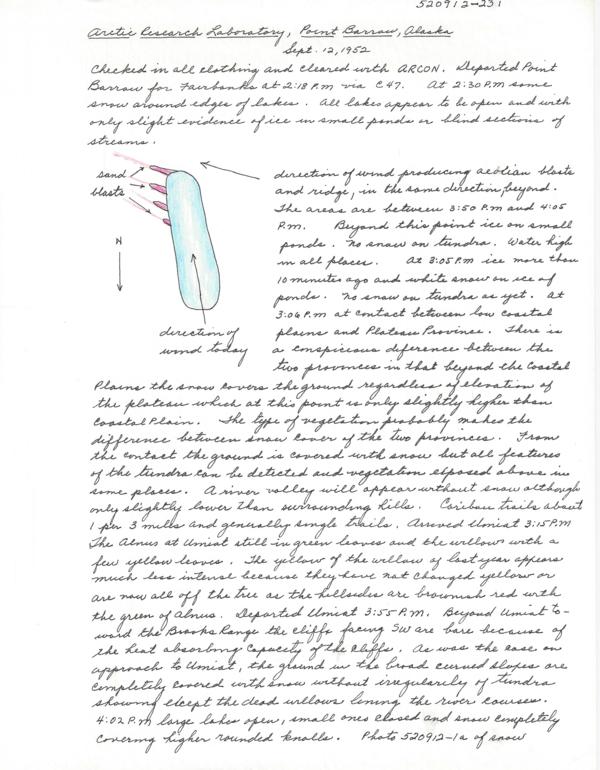 520912-231
Arctic Research Laboratory, Point Barrow, Alaska
Sept. 12, 1952
Checked in all clothing and cleared with ARCON. Departed Point
Barrow for Fairbanks at 2:18 P.M via C47. At 2:30 P.M some
snow around edges of lakes. All lakes appear to be open and with
only slight evidence of ice in small ponds or blind sections of
streams.
sand
blasts
N
direction of
wind today
direction of wind producing aeolian blasts
and ridge, in the same direction, beyond.
The areas are between 3:50 P.M and 4:05
P.M. Beyond this point ice on small
ponds. No snow on tundra. Water high
in all places. At 3:05 P.M ice more than
10 minutes ago and white snow on ice of
ponds. No snow on tundra as yet. At
3:06 P.M at contact between low coastal
plains and Plateau Province. There is
a conspicious diference between the
two provinces in that beyond the Coastal
Plains the snow covers the ground regardless of elevation of
the plateau which at this point is only slightly higher than
Coastal Plain. The type of vegetation probably makes the
difference between snow cover of the two provinces. From
the contact the ground is covered with snow but all features
of the tundra can be detected and vegetation exposed above in
some places. A river valley will appear without snow although
only slightly lower than surrounding hills. Caribou trails about
1 per 3 miles and generally single trails. Arrived Umiat 3:15 P.M
The Alnus at Umiat still in green leaves and the willows with a
few yellow leaves. The yellow of the willow of last year appears
much less intense because they have not changed yellow or
are now all off the tree as the hillsides are brownish red with
the green of Alnus. Departed Umiat 3:55 P.M. Beyond Umiat to-
ward the Brooks Range the cliffs facing SW are bare because of
the heat absorbing capacity of the cliffs. As was the case on
approach to Umiat, the ground in the broad curved slopes are
completely covered with snow without irregularity of tundra
showing except the dead willows lining the river courses.
4:02 P.M large lakes open, small ones closed and snow completely
covering higher rounded knolls. Photo 520912-1a of snow